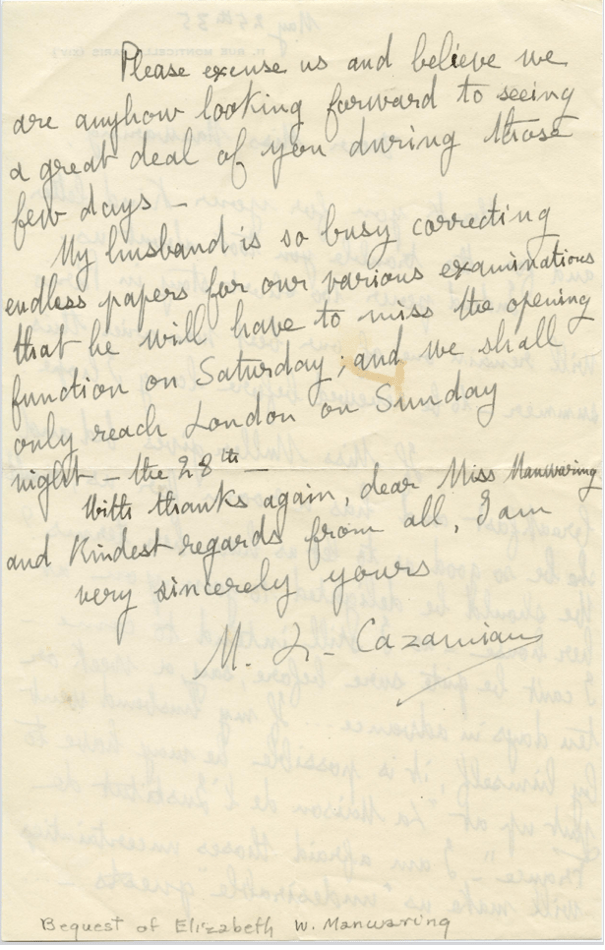 Please excuse us and believe we
are anyhow looking forward to seeing
a great deal of you during those
few days -
My husband is so busy correcting
endless papers for our various examinations
that he will have to miss the opening
function on Saturday; and we shall
only reach London on Sunday
night - the 28th -
With thanks again, dear Miss Manwaring
and kindest regards from all, I am
very sincerely yours
M. L. Cazamian
Bequest of Elizabeth W. Manwaring